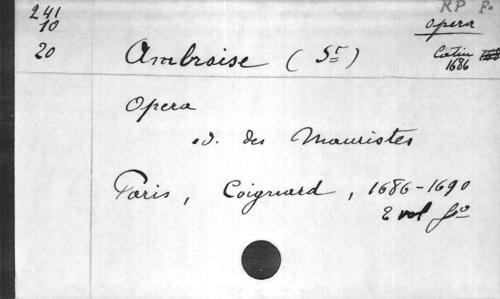 241
10
20
RP Fo
Opera
Latin
1686
Ambroise (St)
Opera
ed. des Mauristes
Paris, Coignard, 1686-1690
2 vol fo